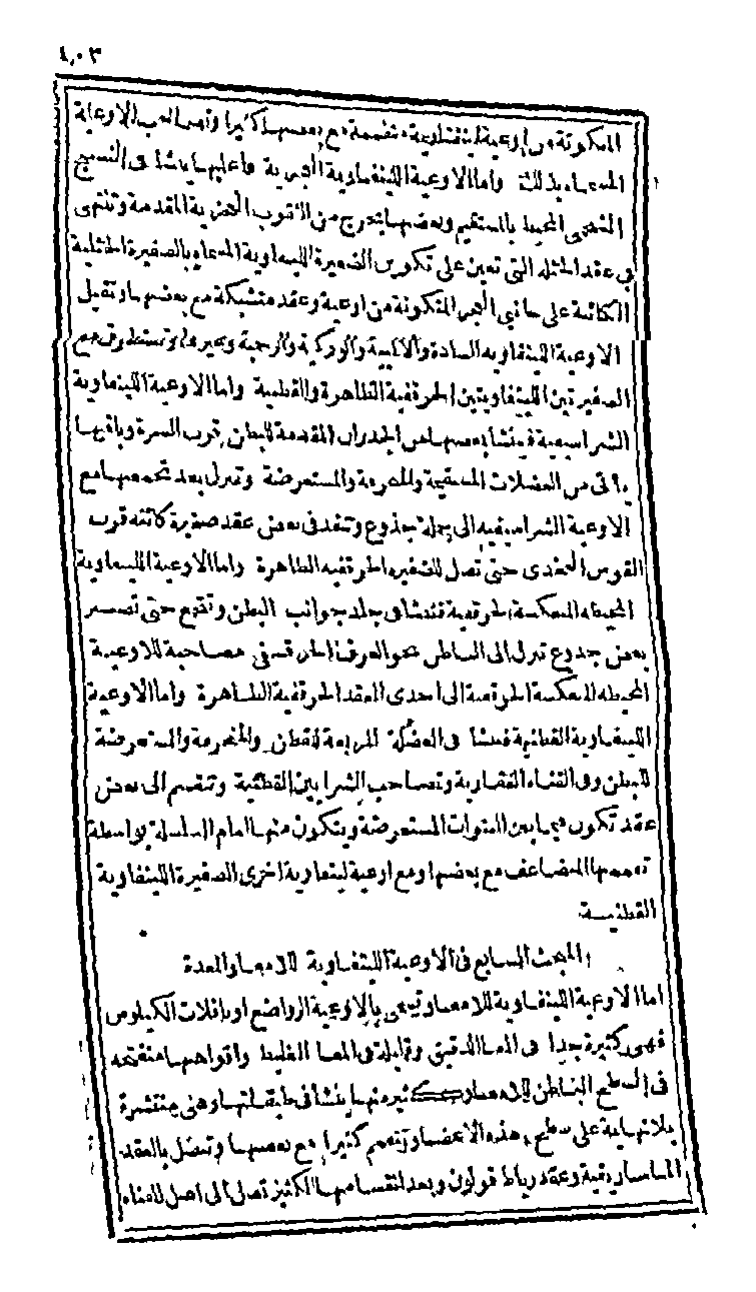 ٤٠٣
المكونة من اوعية لينفاوية منضمة مع بعضها كثيرا وتصاحب الاوعية
المسماة بذلك واما الاوعية اللينفاوية الحجرية فاغلبها ينشا فى النسيج
الشحمى المحيط بالمستقيم وبعضها يخرج من الثقوب العجزية المقدمة وتنتهى
فى عقد المثلة التى تعين على تكوين الضفيرة اللينفاوية المسماة بالضفيرة الخثلية
الكائنة على جانبى الحجر المتكونة من اوعية وعقد متشبكة مع بعضها وتقبل
الاوعية اللينفاويه السادة والاليية والوركية والرحمية وغيرها وتستطرق مع
الضفيرتين اللينفاويتين الحرقفية الظاهرة والقطنية واما الاوعية اللينفاوية
الشراسيفية فينشا بعضها من الجدران المقدمة للبطن قرب السرة وباقيها
ياتى من العضلات المستقيمة والمنحرفة والمستعرضة وتنزل بعد تجمعها مع
الاوعية الشراسيفيه الى جملة جذوع وتنفذ فى بعض عقد صغيرة كائنه قرب
القوس الفخذى حتى تصل للضفيره الحرقفيه الظاهرة واما الاوعية اللينفاوية
المحيطه المنعكسة الحرقفية فتنشا فى جلد جوانب البطن وتجتمع حتى تصير
بعض جذوع تنزل الى الباطن نحو العرف الحرقفى مصاحبة للاوعية
المحيطه المنعكسة الحرقفية الى احدى العقد الحرقفية الظاهرة واما الاوعية
اللينفاوية القطنية فتنشا فى العضلة المربعة للقطن والمنحرفة والمستعرضة
للبطن وفى القناه الفقارية وتصاحب الشرايين القطنية وتنقسم الى بعض
عقد تكون فيما بين النتوات المستعرضة ويتكون منها امام السلسلة بواسطة
تضممها المتضاعف مع بعضها ومع اوعية لينفاوية اخرى الضفيرة اللينفاوية
القطنيـة
المبحث السابع فى الاوعية اللينفاوية للامعا والمعدة
اما الاوعية اللينفاوية للامعا وتسمى بالاوعية الرواضع او بناقلات الكيلوس
فهى كثيرة جدا فى المعا الدقيق وقليلة فى المعا الغليظ وافواهها منفتحه
فى السطح الباطن للامعا وكثير منها ينشا فى طبقاتها وهى منتشرة
بلا نهاية على سطح هذه الاعضا وتنضم كثيرا مع بعضها وتتصل بالعقد
الماساريقية وعقد رباط قولون وبعد انقسامها الكثير تصل الى اصل للقناه